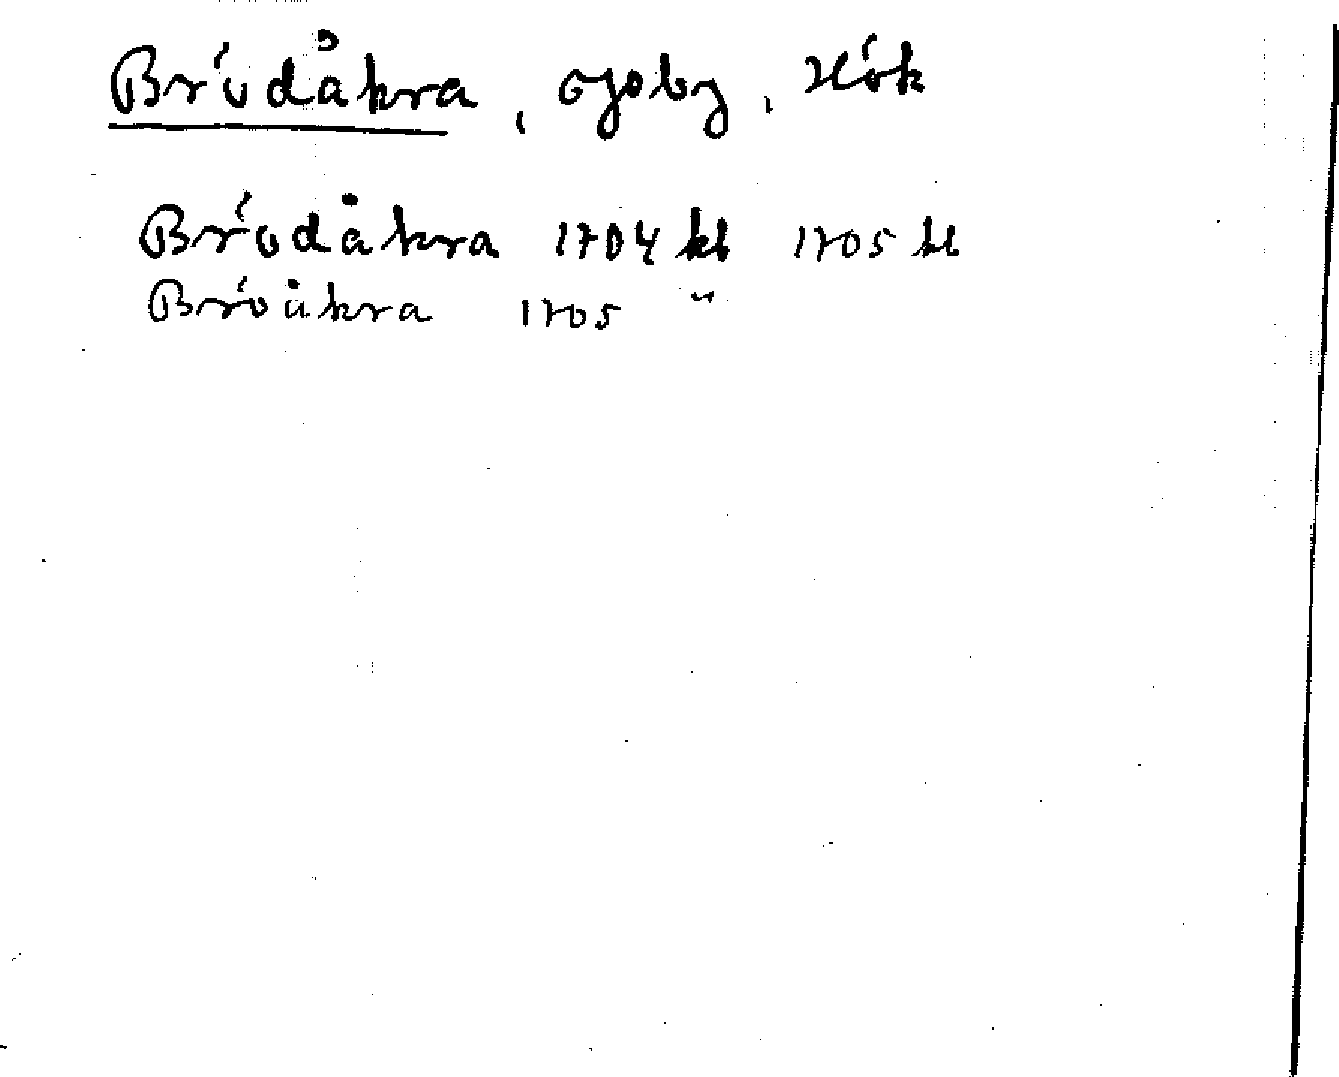 Brödåkra, Ojoby, Rök
Brödåkra 1704 kb 1705 kb
Bröåkra 1705 "